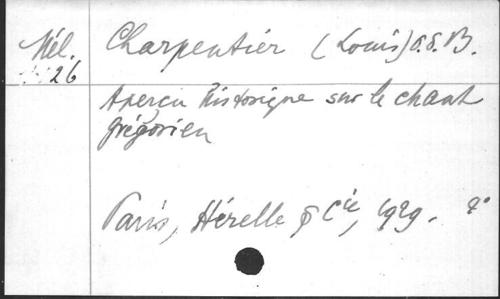 Mél.
26
Charpentier (Louis) O.S.B.
Aperçu historique sur le chant
grégorien
Paris, Hérelle & Cie, 1929. 4°